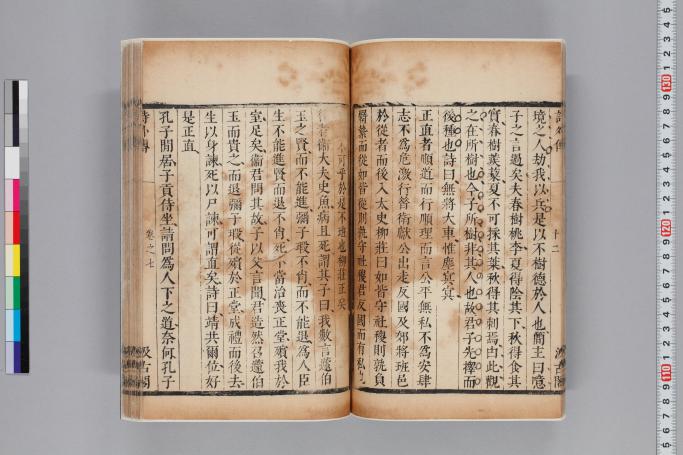 境之人劫我以兵是以不樹德於人也簡主曰噫
子之言過矣夫春樹桃李夏得陰其下秋得食其
實春樹蒺藜夏不可採其葉秋得其刺焉由此觀
之在所樹也今子所樹非其人也故君子先擇而
後種也詩曰無將大車惟塵冥冥
正直者順道而行順理而言公平無私不爲安肆
志不爲危激行昝衛獻公出走反國及郊將班邑
於從者而後入太史柳莊曰如皆守社稷則孰負
羈縶而從如皆從則孰守社稷君反國而有私
不可乎於是不班也柳莊正矣
衞大夫史魚病且死謂其子曰我數言蘧伯
玉之賢而不能進彌子瑕不肖而不能退爲人臣
生不能進賢而退不肖死不當治喪正堂殯我於
室足矣衞君問其故子以父言聞君造然召蘧伯
玉而貴之而退彌子瑕徙殯於正堂成禮而後去
生以身諫死以尸諫可謂直矣詩曰靖共爾位好
是正直
孔子閒居子貢侍坐請問爲人下之道奈何孔子
詩外傳
卷之七
汲古閣
130
120
110